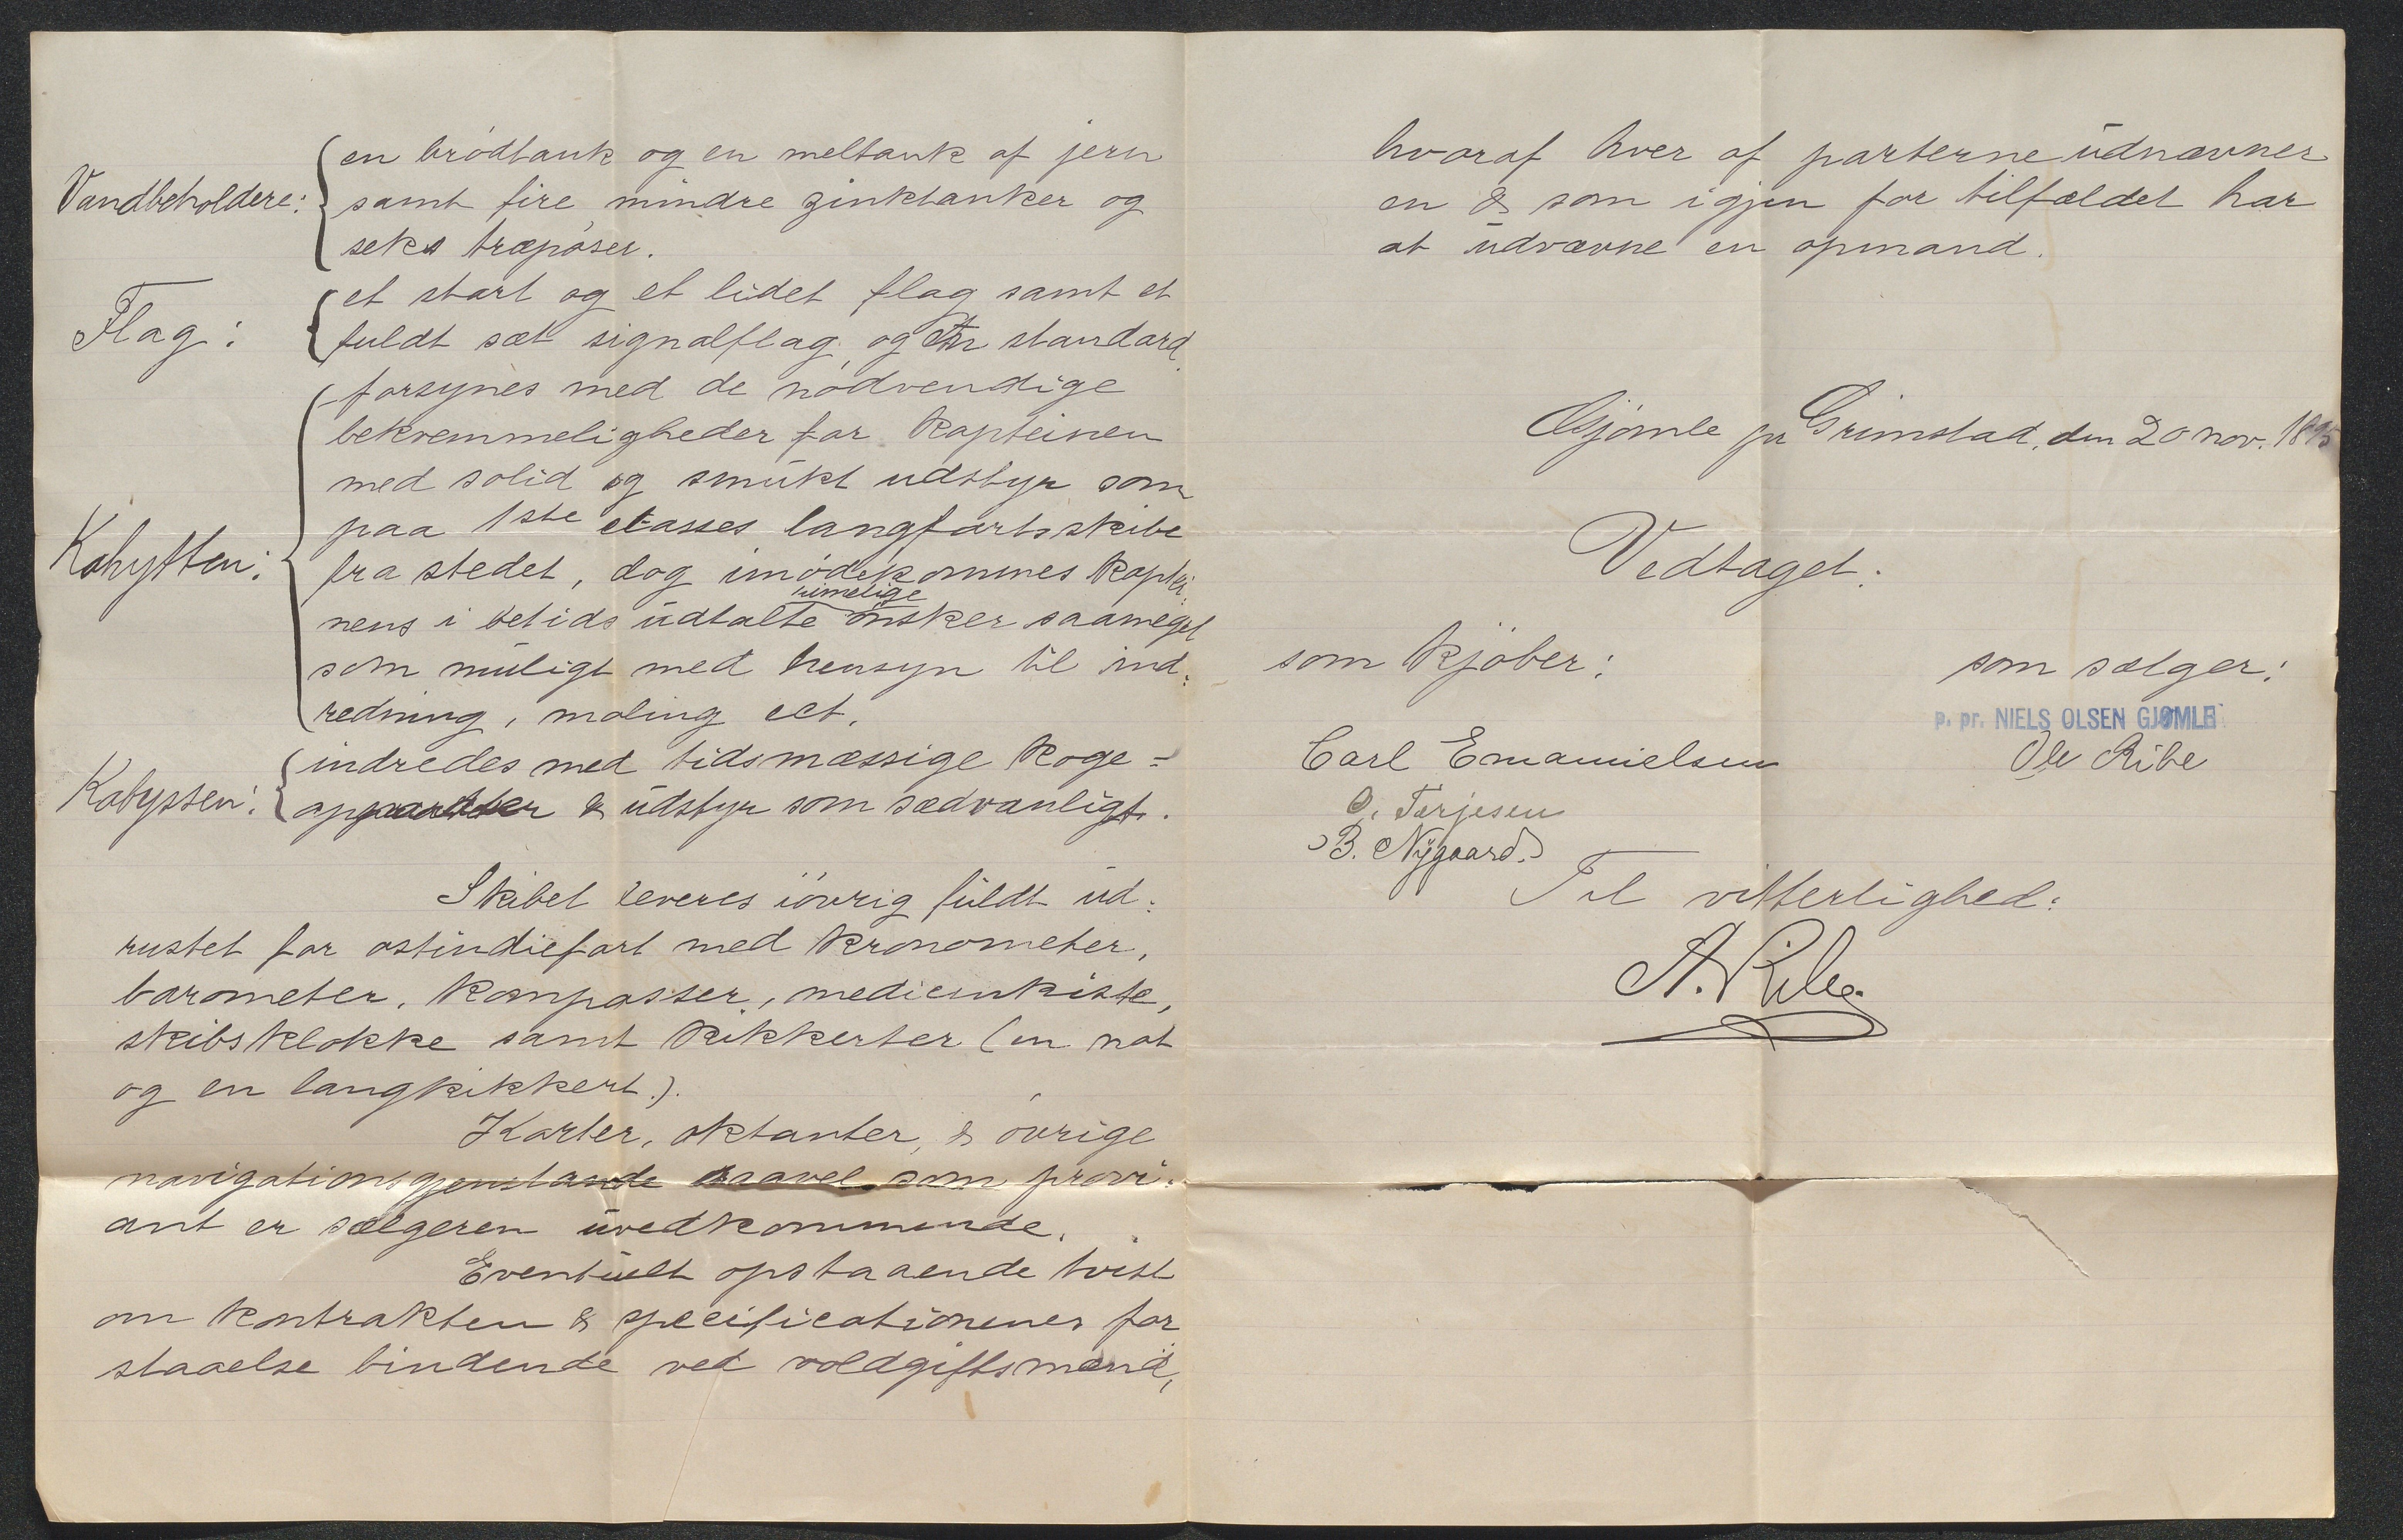 Vandbeholdere:
en brödtank og en meltank af jern
samt fire mindre zinktanker og
seks træpöser.
Flag:
et stort og et lidet flag samt et
fuldt sæt signalflag, og en standard
Kahytten:
forsynes med de nödvendige
bekvemmeligheder for kapteinen
med solid og smukt udstyr som
paa 1ste classes langfartsskibe
fra stedet, dog imödekommes kaptei-
rimelige
nens i betids udtalte önsker saameget
som muligt med hensyn til ind-
redning, maling ect.
Kabyssen:
indredes med tidsmæssige koge-
apparater & udstyr som sædvanligt.
Skibet leveres iövrig fuldt ud-
rustet for ostindiefart med kronometer,
barometer, kompasser, medicinkiste,
skibsklokke samt kikkerter (en nat
og en langkikkert).
Karter, oktanter, & övrige
navigationsgjenstande saavel som provi-
ant er sælgeren uvedkommende.
Eventuelt opstaaende tvist
om kontrakten & specificationenes for
staaelse bindende ved voldgiftsmænd,
hvoraf hver af parterne udnævner
en & som igjen for tilfældet har
at udnævne en opmand.
Gjömle pr Grimstad, den 20 nov. 1895
Vedtaget:
som kjöber:
som sælger:
p. pr. NIELS OLSEN GJØMLE
Carl Emanuelsen
Ole Ribe
O. Terjesen
B. Nygaard.
Til vitterlighed:
A. Ribe